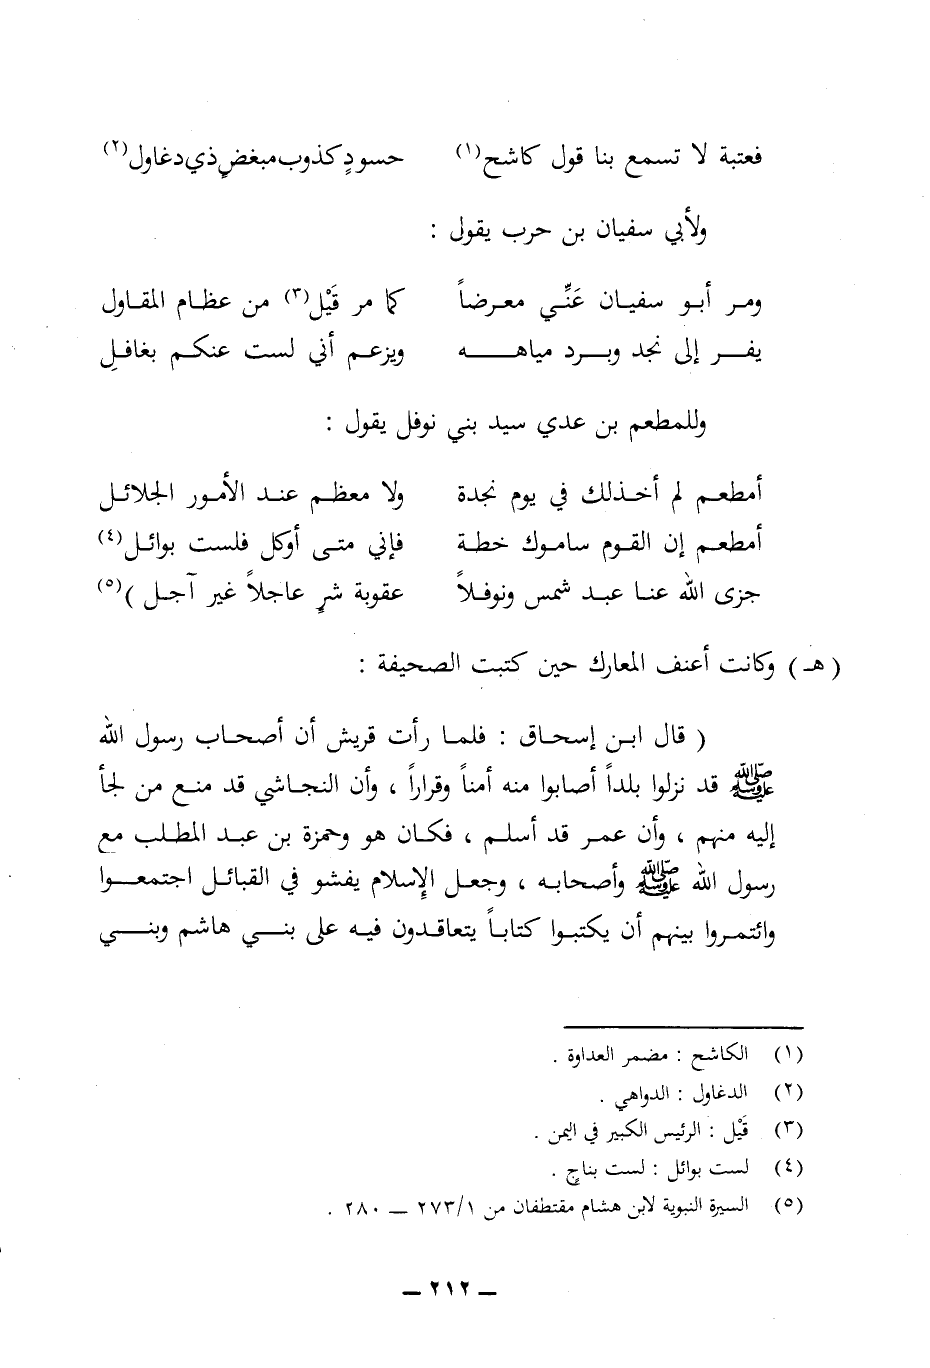 فعتبة لا تسمع بنا قول كاشح(١) حسودٍ كذوب مبغضٍ ذي دغاول(٢)
ولأبي سفيان بن حرب يقول :
ومر أبو سفيان عَنِّي معرضاً كما مر قَيْل(٣) من عظام المقاول
يفر إلى نجد وبرد مياهه ويزعم أني لست عنكم بغافلِ
وللمطعم بن عدي سيد بني نوفل يقول :
أمطعم لم أخذلك في يوم نجدة ولا معظم عند الأمور الجلائل
أمطعم إن القوم ساموك خطة فإني متى أوكل فلست بوائل(٤)
جزى الله عنا عبد شمس ونوفلاً عقوبة شرٍ عاجلاً غير آجل )(٥)
( هـ ) وكانت أعنف المعارك حين كتبت الصحيفة :
( قال ابن إسحاق : فلما رأت قريش أن أصحاب رسول الله
ﷺ قد نزلوا بلداً أصابوا منه أمناً وقراراً ، وأن النجاشي قد منع من لجأ
إليه منهم ، وأن عمر قد أسلم ، فكان هو وحمزة بن عبد المطلب مع
رسول الله ﷺ وأصحابه ، وجعل الإسلام يفشو في القبائل اجتمعوا
وائتمروا بينهم أن يكتبوا كتاباً يتعاقدون فيه على بني هاشم وبني
(١) الكاشح : مضمر العداوة .
(٢) الدغاول : الدواهي .
(٣) قَيْل : الرئيس الكبير في اليمن .
(٤) لست بوائل : لست بناجٍ .
(٥) السيرة النبوية لابن هشام مقتطفان من ٢٧٣/١ ــ ٢٨٠ .
ــ ٢١٢ ــ